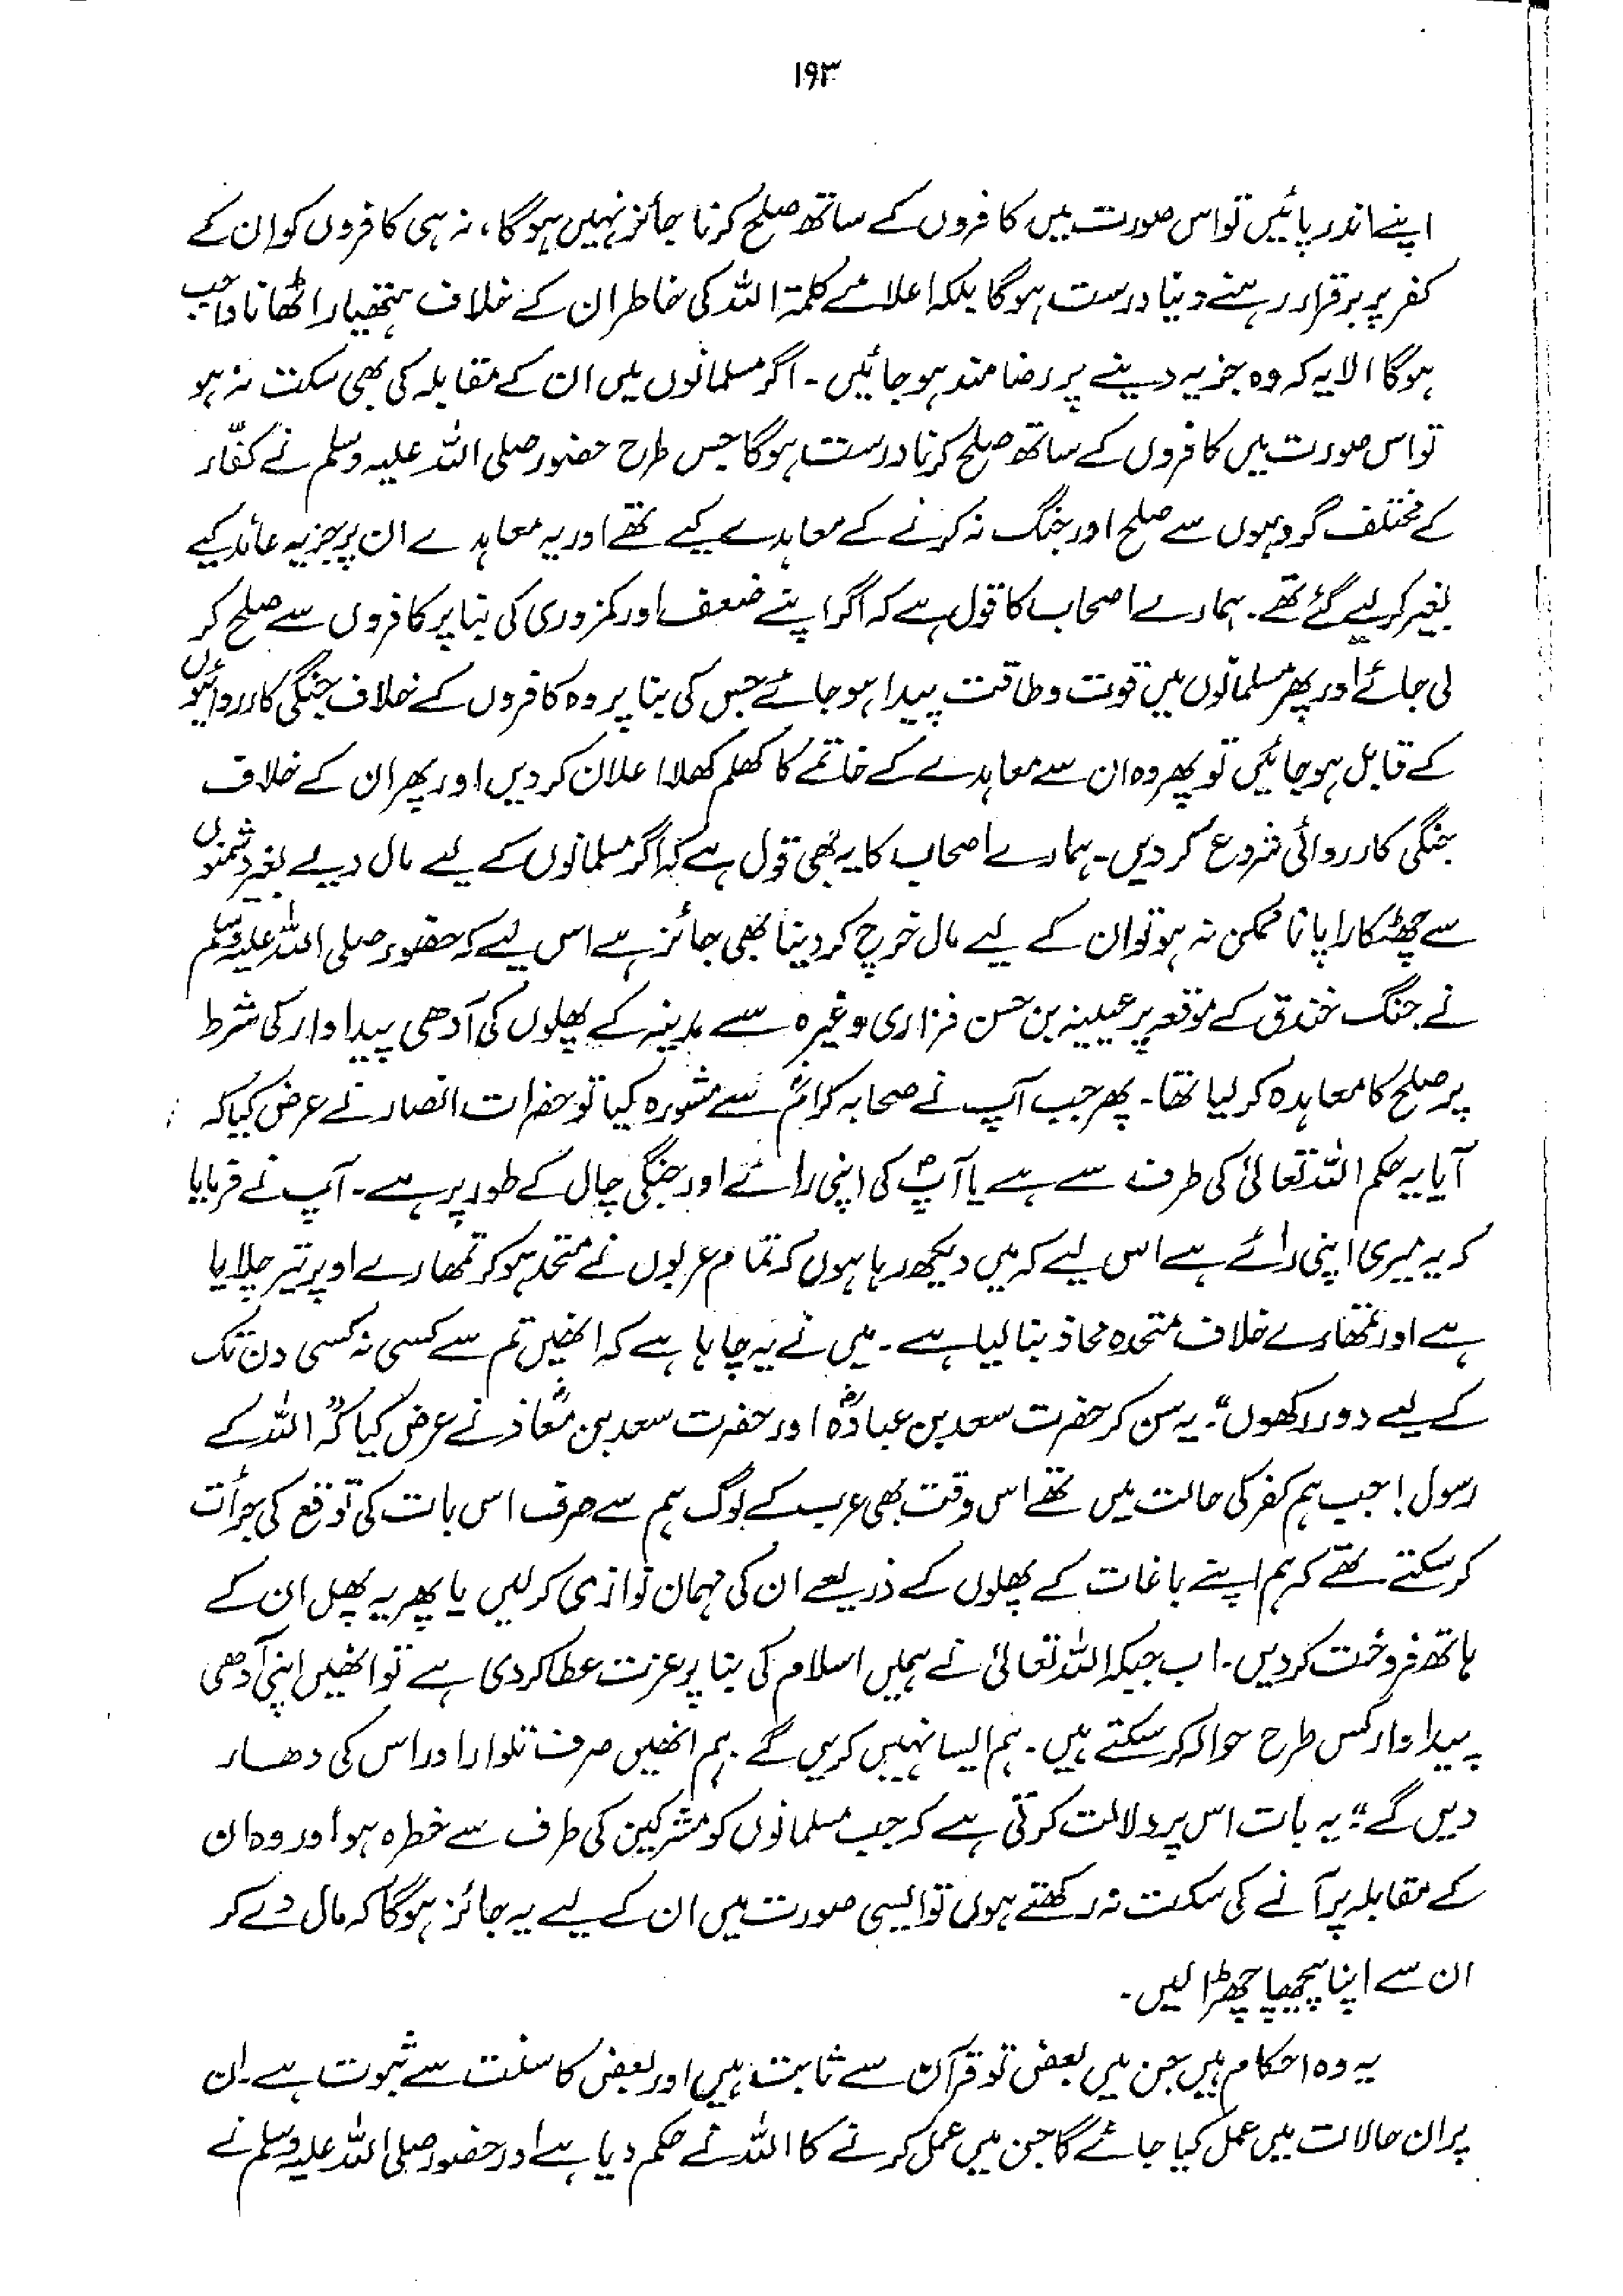 ۱۹۳
اپنے اندر پائیں تو اس صورت میں کافروں کے ساتھ صلح کرنا جائز نہیں ہوگا، نہ ہی کافروں کو ان کے
کفر پر برقرار رہنے دینا درست ہوگا بلکہ اعلائے کلمۃ اللہ کی خاطر ان کے خلاف ہتھیار اٹھانا واجب
ہوگا الا یہ کہ وہ جزیہ دینے پر رضامند ہو جائیں۔ اگر مسلمانوں میں ان کے مقابلہ کی بھی سکت نہ ہو
تو اس صورت میں کافروں کے ساتھ صلح کرنا درست ہوگا جس طرح حضور صلی اللہ علیہ وسلم نے کفّار
کے مختلف گروہوں سے صلح اور جنگ نہ کرنے کے معاہدے کیے تھے اور یہ معاہدے ان پر جزیہ عائد کیے
بغیر کر لیے گئے تھے۔ ہمارے اصحاب کا قول ہے کہ اگر اپنے ضعف اور کمزوری کی بنا پر کافروں سے صلح کر
لی جائے اور پھر مسلمانوں میں قوت و طاقت پیدا ہو جائے جس کی بنا پر وہ کافروں کے خلاف جنگی کارروائیوں
کے قابل ہو جائیں تو پھر وہ ان سے معاہدے کے خاتمے کا کھلم کھلا اعلان کر دیں اور پھر ان کے خلاف
جنگی کارروائی شروع کر دیں۔ ہمارے اصحاب کا یہ بھی قول ہے کہ اگر مسلمانوں کے لیے مال دیے بغیر دشمنوں
سے چھٹکارا پانا ممکن نہ ہو تو ان کے لیے مال خرچ کر دینا بھی جائز ہے اس لیے کہ حضور صلی اللہ علیہ وسلم
نے جنگ خندق کے موقعہ پر عیینہ بن حسن فزاری وغیرہ سے مدینہ کے پھلوں کی آدھی پیداوار کی شرط
پر صلح کا معاہدہ کر لیا تھا۔ پھر جب آپ نے صحابہ کرامؓ سے مشورہ کیا تو حضرات انصار نے عرض کیا کہ
آیا یہ حکم اللہ تعالیٰ کی طرف سے ہے یا آپؐ کی اپنی رائے اور جنگی چال کے طور پر ہے۔ آپ نے فرمایا
کہ یہ میری اپنی رائے ہے اس لیے کہ میں دیکھ رہا ہوں کہ تمام عربوں نے متحد ہو کر تمھارے اوپر تیر چلایا
ہے اور تمھارے خلاف متحدہ محاذ بنا لیا ہے۔ میں نے یہ چاہا ہے کہ انھیں تم سے کسی نہ کسی دن تک
کے لیے دور رکھوں“۔ یہ سن کر حضرت سعد بن عبادہؓ اور حضرت سعد بن معاذؓ نے عرض کیا کہ ”اللہ کے
رسول! جب ہم کفر کی حالت میں تھے اس وقت بھی عرب کے لوگ ہم سے صرف اس بات کی توقع کی جرأت
کر سکتے تھے کہ ہم اپنے باغات کے پھلوں کے ذریعے ان کی مہمان نوازی کر لیں یا پھر یہ پھل ان کے
ہاتھ فروخت کر دیں۔ اب جبکہ اللہ تعالیٰ نے ہمیں اسلام کی بنا پر عزت عطا کر دی ہے تو انھیں اپنی آدھی
پیداوار کس طرح حوالہ کر سکتے ہیں۔ ہم ایسا نہیں کریں گے۔ ہم انھیں صرف تلوار اور اس کی دھار
دیں گے“۔ یہ بات اس پر دلالت کرتی ہے کہ جب مسلمانوں کو مشرکین کی طرف سے خطرہ ہو اور وہ ان
کے مقابلہ پر آنے کی سکت نہ رکھتے ہوں تو ایسی صورت میں ان کے لیے یہ جائز ہوگا کہ مال دے کر
ان سے اپنا پیچھا چھڑا لیں۔
یہ وہ احکام ہیں جن میں بعض تو قرآن سے ثابت ہیں اور بعض کا سنت سے ثبوت ہے۔ ان
پر ان حالات میں عمل کیا جائے گا جن میں عمل کرنے کا اللہ نے حکم دیا ہے اور حضور صلی اللہ علیہ وسلم نے